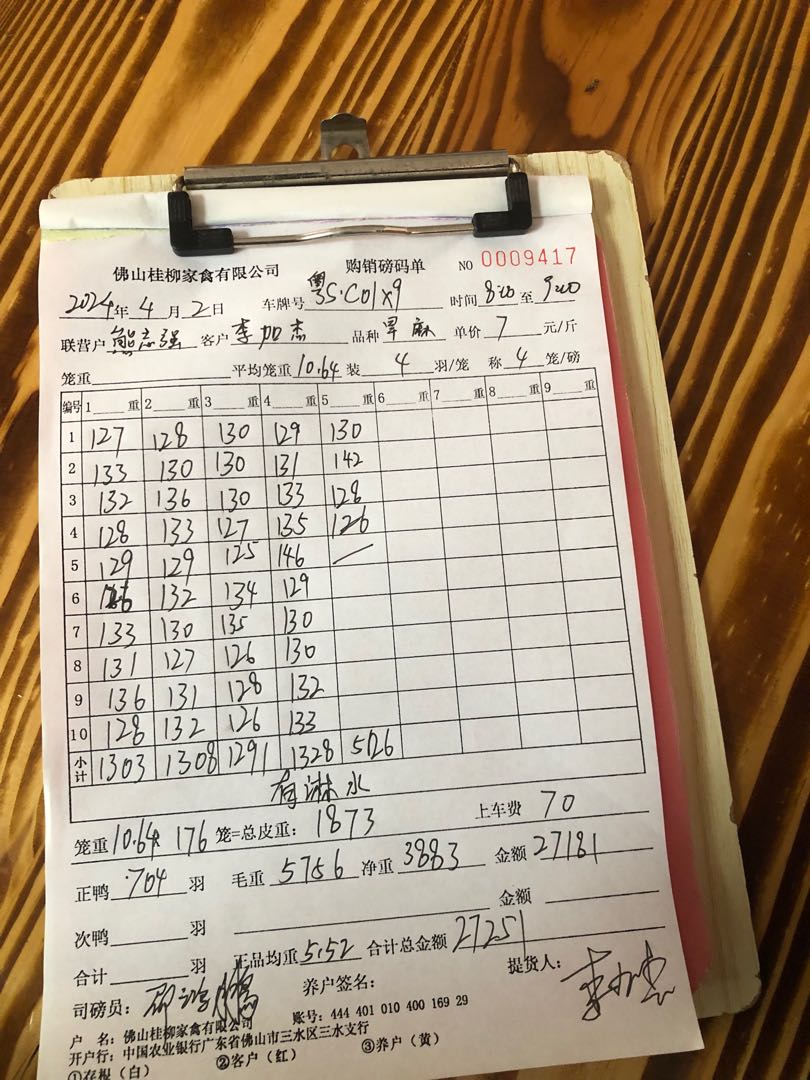 佛山桂柳家禽有限公司 购销磅码单 NO 0009417
2024年 4 月 2 日 车牌号 粤S·C01X9 时间 8:20 至 9:20
联营户 熊志强 客户 李加杰 品种 旱麻 单价 7 元/斤
笼重 平均笼重 10.64 装 4 羽/笼 称 4 笼/磅
编号 1 重 2 重 3 重 4 重 5 重 6 重 7 重 8 重 9 重
1 127 128 130 129 130
2 133 130 130 131 142
3 132 136 130 133 128
4 128 133 127 135 126
5 129 129 125 146
6 132 134 129
7 133 130 135 130
8 131 127 126 130
9 136 131 128 132
10 128 132 126 133
小计 1303 1308 1291 1328 526
有淋水
笼重 10.64x 176 笼=总皮重: 1873 上车费 70
正鸭 704 羽 毛重 5756 净重 3883 金额 27181
次鸭 羽 金额
合计 羽 正品均重 5.52 合计总金额 27251
司磅员: 养户签名: 提货人: 李加杰
户 名: 佛山桂柳家禽有限公司 账号: 444 401 010 400 169 29
开户行: 中国农业银行广东省佛山市三水区三水支行
①存根(白) ②客户(红) ③养户(黄)